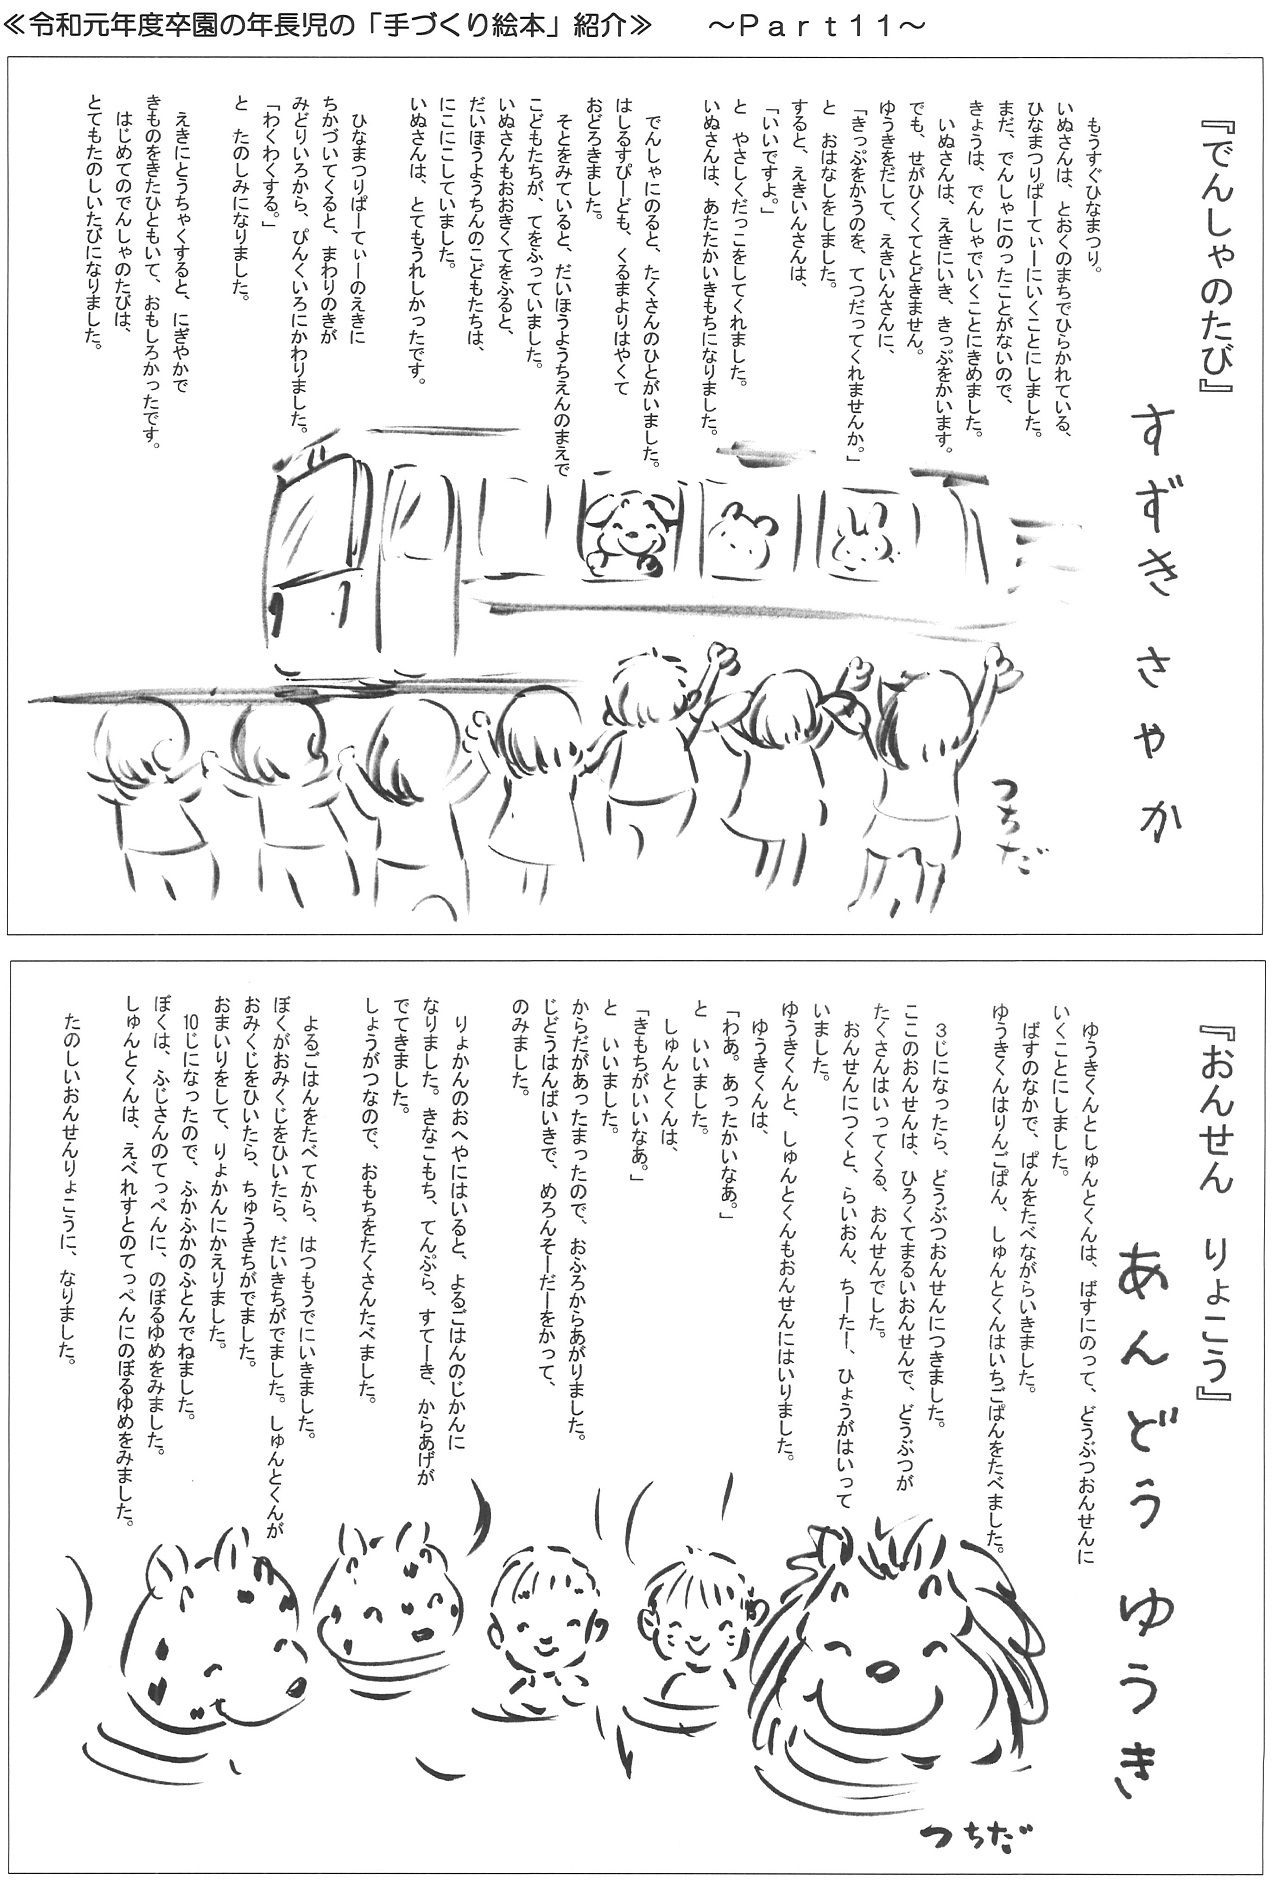 ≪令和元年度卒園の年長児の「手づくり絵本」紹介≫　～Ｐａｒｔ１１～
『でんしゃのたび』
すずき さやか
もうすぐひなまつり。
いぬさんは、とおくのまちでひらかれている、
ひなまつりぱーてぃーにいくことにしました。
まだ、でんしゃにのったことがないので、
きょうは、でんしゃでいくことにきめました。
いぬさんは、えきにいき、きっぷをかいます。
でも、せがひくくてとどきません。
ゆうきをだして、えきいんさんに、
「きっぷをかうのを、てつだってくれませんか。」
と　おはなしをしました。
すると、えきいんさんは、
「いいですよ。」
と　やさしくだっこをしてくれました。
いぬさんは、あたたかいきもちになりました。
でんしゃにのると、たくさんのひとがいました。
はしるすぴーども、くるまよりはやくて
おどろきました。
そとをみていると、だいほうようちえんのまえで
こどもたちが、てをふっていました。
いぬさんもおおきくてをふると、
だいほうようちんのこどもたちは、
にこにこしていました。
いぬさんは、とてもうれしかったです。
ひなまつりぱーてぃーのえきに
ちかづいてくると、まわりのきが
みどりいろから、ぴんくいろにかわりました。
「わくわくする。」
と　たのしみになりました。
えきにとうちゃくすると、にぎやかで
きものをきたひともいて、おもしろかったです。
はじめてのでんしゃのたびは、
とてもたのしいたびになりました。
つちだ
『おんせん　りょこう』
あんどう ゆうき
ゆうきくんとしゅんとくんは、ばすにのって、どうぶつおんせんに
いくことにしました。
ばすのなかで、ぱんをたべながらいきました。
ゆうきくんはりんごぱん、しゅんとくんはいちごぱんをたべました。
３じになったら、どうぶつおんせんにつきました。
ここのおんせんは、ひろくてまるいおんせんで、どうぶつが
たくさんはいってくる、おんせんでした。
おんせんにつくと、らいおん、ちーたー、ひょうがはいって
いました。
ゆうきくんと、しゅんとくんもおんせんにはいりました。
ゆうきくんは、
「わあ。あったかいなあ。」
と　いいました。
しゅんとくんは、
「きもちがいいなあ。」
と　いいました。
からだがあったまったので、おふろからあがりました。
じどうはんばいきで、めろんそーだーをかって、
のみました。
りょかんのおへやにはいると、よるごはんのじかんに
なりました。きなこもち、てんぷら、すてーき、からあげが
でてきました。
しょうがつなので、おもちをたくさんたべました。
よるごはんをたべてから、はつもうでにいきました。
ぼくがおみくじをひいたら、だいきちがでました。しゅんとくんが
おみくじをひいたら、ちゅうきちがでました。
おまいりをして、りょかんにかえりました。
10じになったので、ふかふかのふとんでねました。
ぼくは、ふじさんのてっぺんに、のぼるゆめをみました。
しゅんとくんは、えべれすとのてっぺんにのぼるゆめをみました。
たのしいおんせんりょこうに、なりました。
つちだ